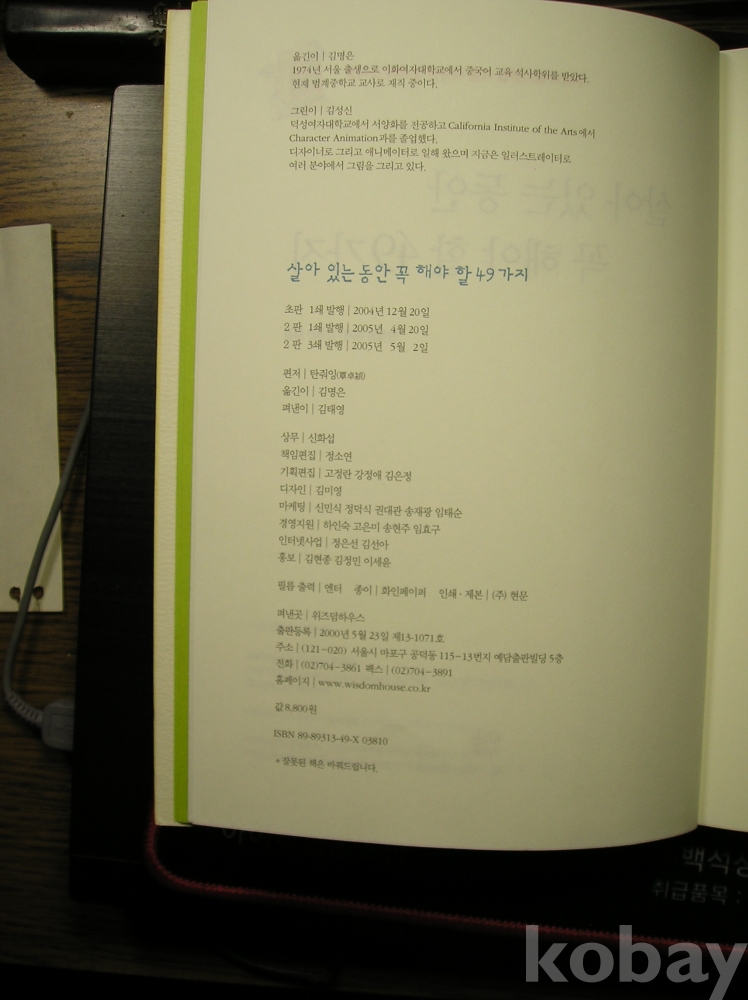 옮긴이 | 김명은
1974년 서울 출생으로 이화여자대학교에서 중국어 교육 석사학위를 받았다.
현재 범계중학교 교사로 재직 중이다.
그린이 | 김성신
덕성여자대학교에서 서양화를 전공하고 California Institute of the Arts에서
Character Animation과를 졸업했다.
디자이너로 그리고 애니메이터로 일해 왔으며 지금은 일러스트레이터로
여러 분야에서 그림을 그리고 있다.
살아 있는 동안 꼭 해야 할 49가지
초판 1쇄 발행 | 2004년 12월 20일
2판 1쇄 발행 | 2005년 4월 20일
2판 3쇄 발행 | 2005년 5월 2일
편저 | 탄줘잉(覃卓穎)
옮긴이 | 김명은
펴낸이 | 김태영
상무 | 신화섭
책임편집 | 정소연
기획편집 | 고정란 강정애 김은정
디자인 | 김미영
마케팅 | 신민식 정덕식 권대관 송재광 임태순
경영지원 | 하인숙 고은미 송현주 임효구
인터넷사업 | 정은선 김선아
홍보 | 김현종 김정민 이세윤
필름 출력 | 엔터 종이 | 화인페이퍼 인쇄·제본 | (주) 현문
펴낸곳 | 위즈덤하우스
출판등록 | 2000년 5월 23일 제13-1071호
주소 | (121-020) 서울시 마포구 공덕동 115-13번지 예담출판빌딩 5층
전화 | (02)704-3861 팩스 | (02)704-3891
홈페이지 | www.wisdomhouse.co.kr
값 8,800원
ISBN 89-89313-49-X 03810
* 잘못된 책은 바꿔드립니다.
백식
취급품목 :
kobay